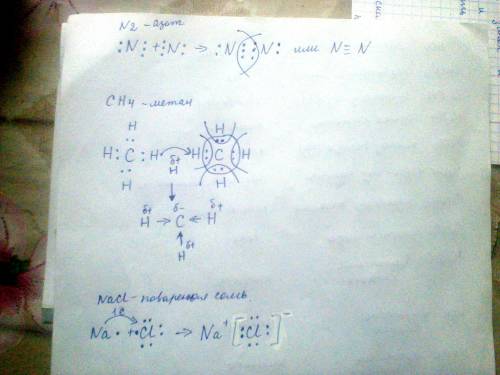 N2 - азот
:N: + :N: → :N::N: или N≡N
CH4 - метан
H H
H:C:H H:C:H
H H
δ+
H
δ+ δ- δ+
H → C ← H
↑ δ+
H
NaCl - поваренная соль
1e
Na· + ·Cl: → Na⁺ [:Cl:]⁻